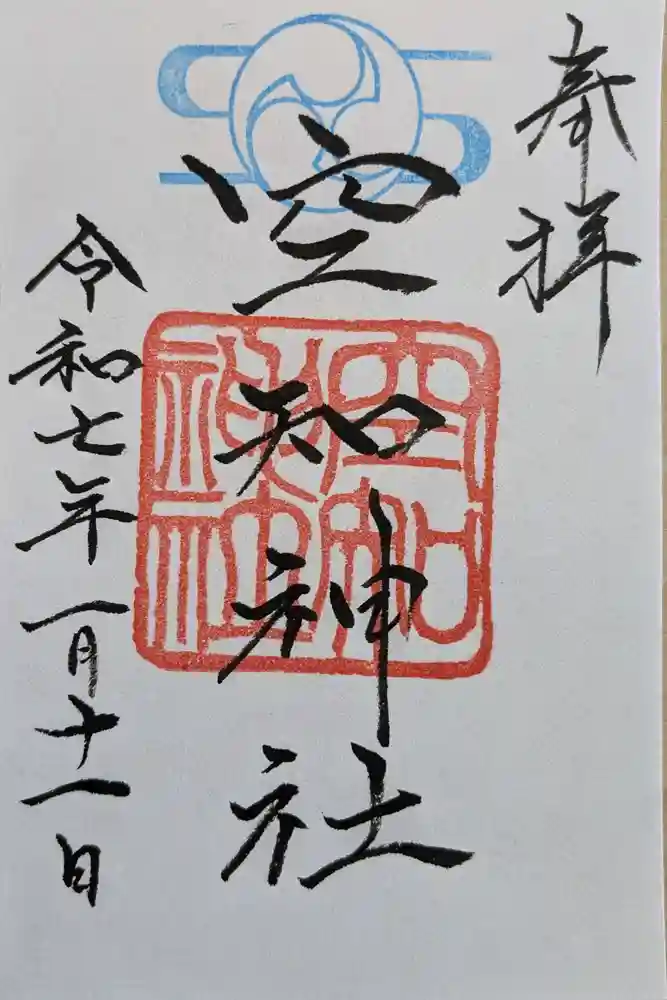 奉拝
空知神社
空知
神社
令和七年一月十一日